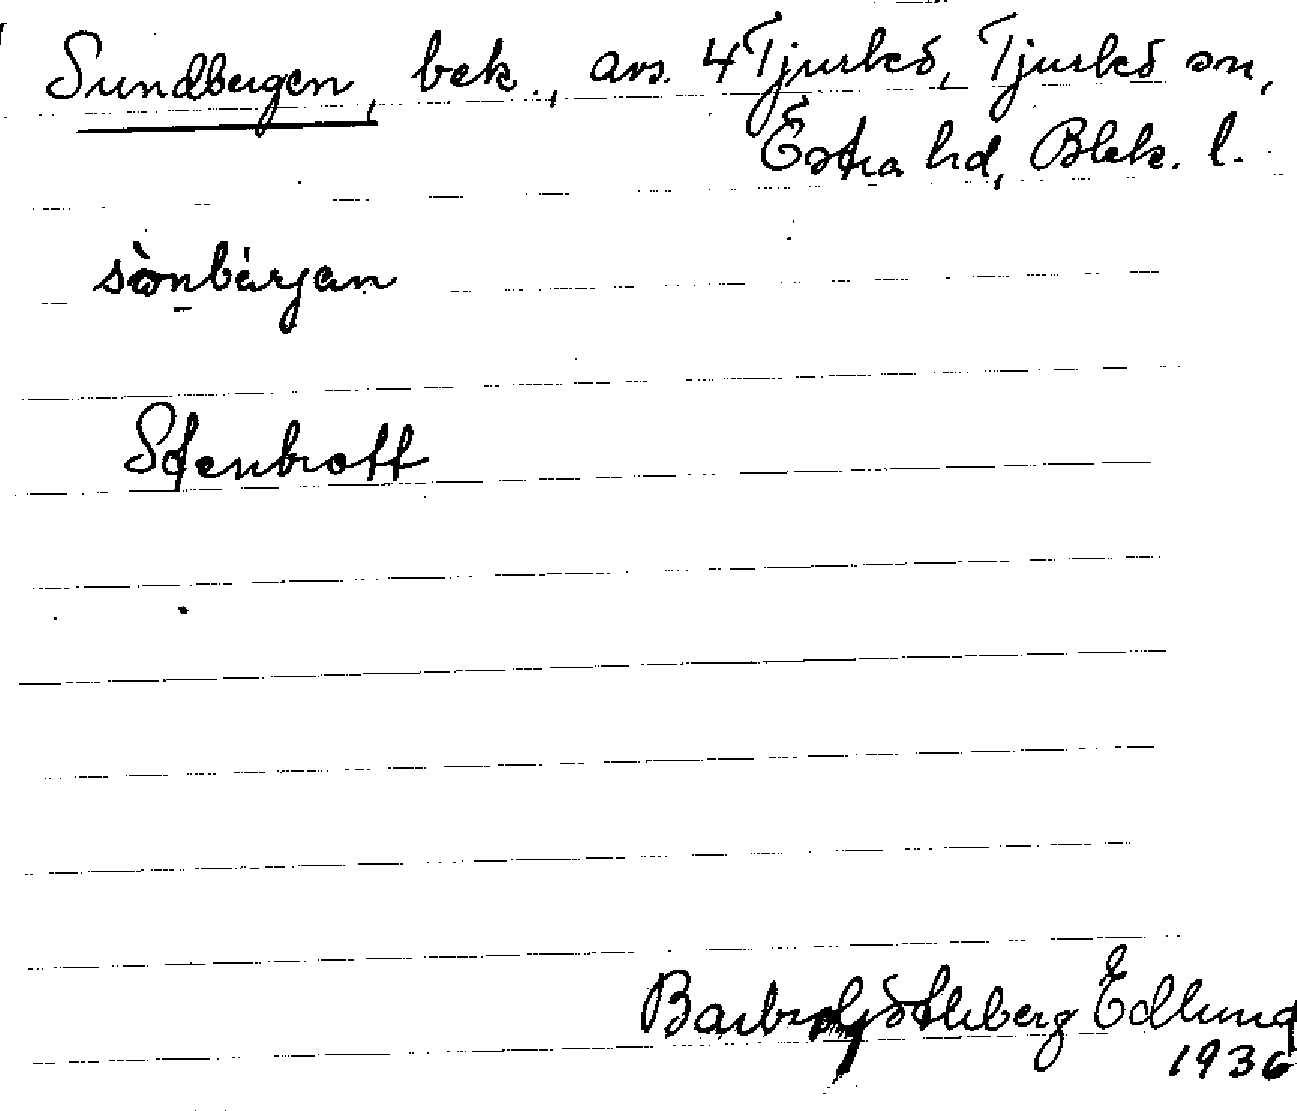 Sundbergen, bek., avs. 4 Tjurkö, Tjurkö sn,
Östra hd, Blek. l.
sònbárjan
Stenbrott
Barbro Götleberg Edlund
1936